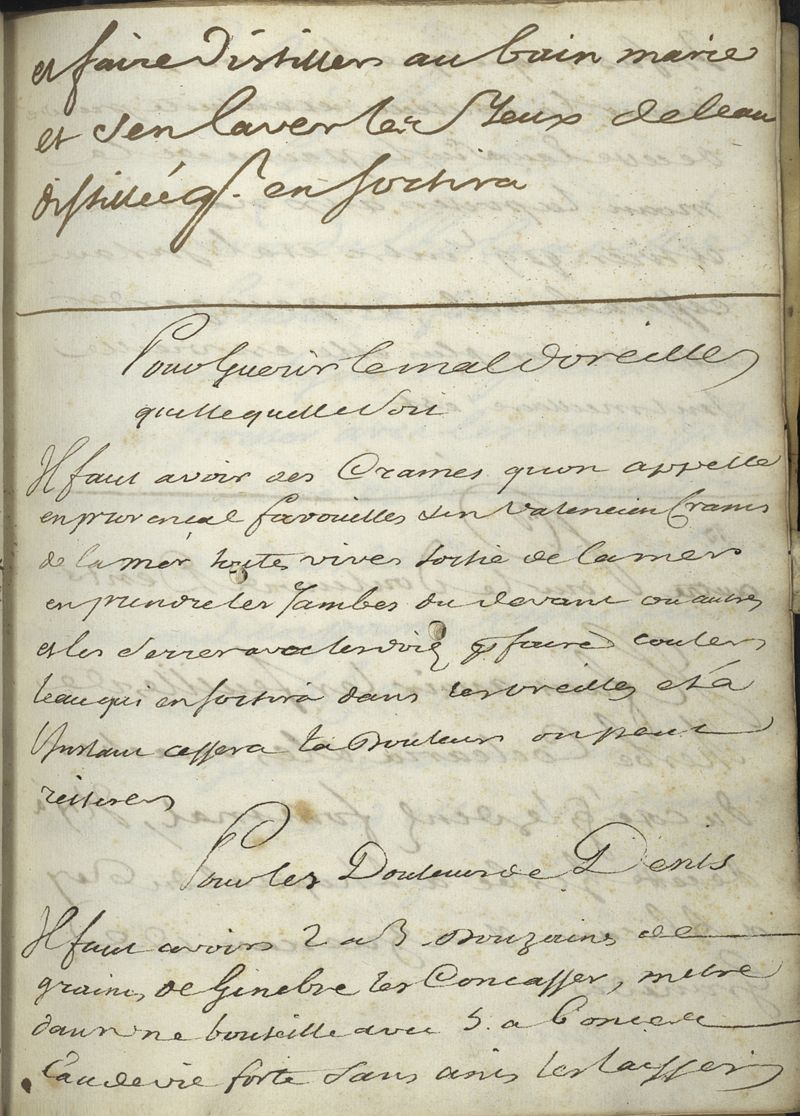 et faire Distiller au bain marie
et s'en laver les yeux de leau
distillée qr. en sortira
Pour Guerir le mal doreille
quelle quelle soit
Il faut avoir des Crames quon appelle
en provencal favouilles den Valencien Crams
de la mer toutes vives sortie de la mer
en prendre les Jambes du devant ou autres
et les serrer avec les doig pr faire couler
leau qui en sortira dans les oreilles et a
l'Instant cessera la Douleur on peut
reiterer
Pour les Douleurs de Dents
Il faut avoir 2 a 3 Douzaines de
graines de Ginebre les Concasser, metre
dans une bouteille avec 5. a 6 once de
l'audevie forte sans anis les laisser